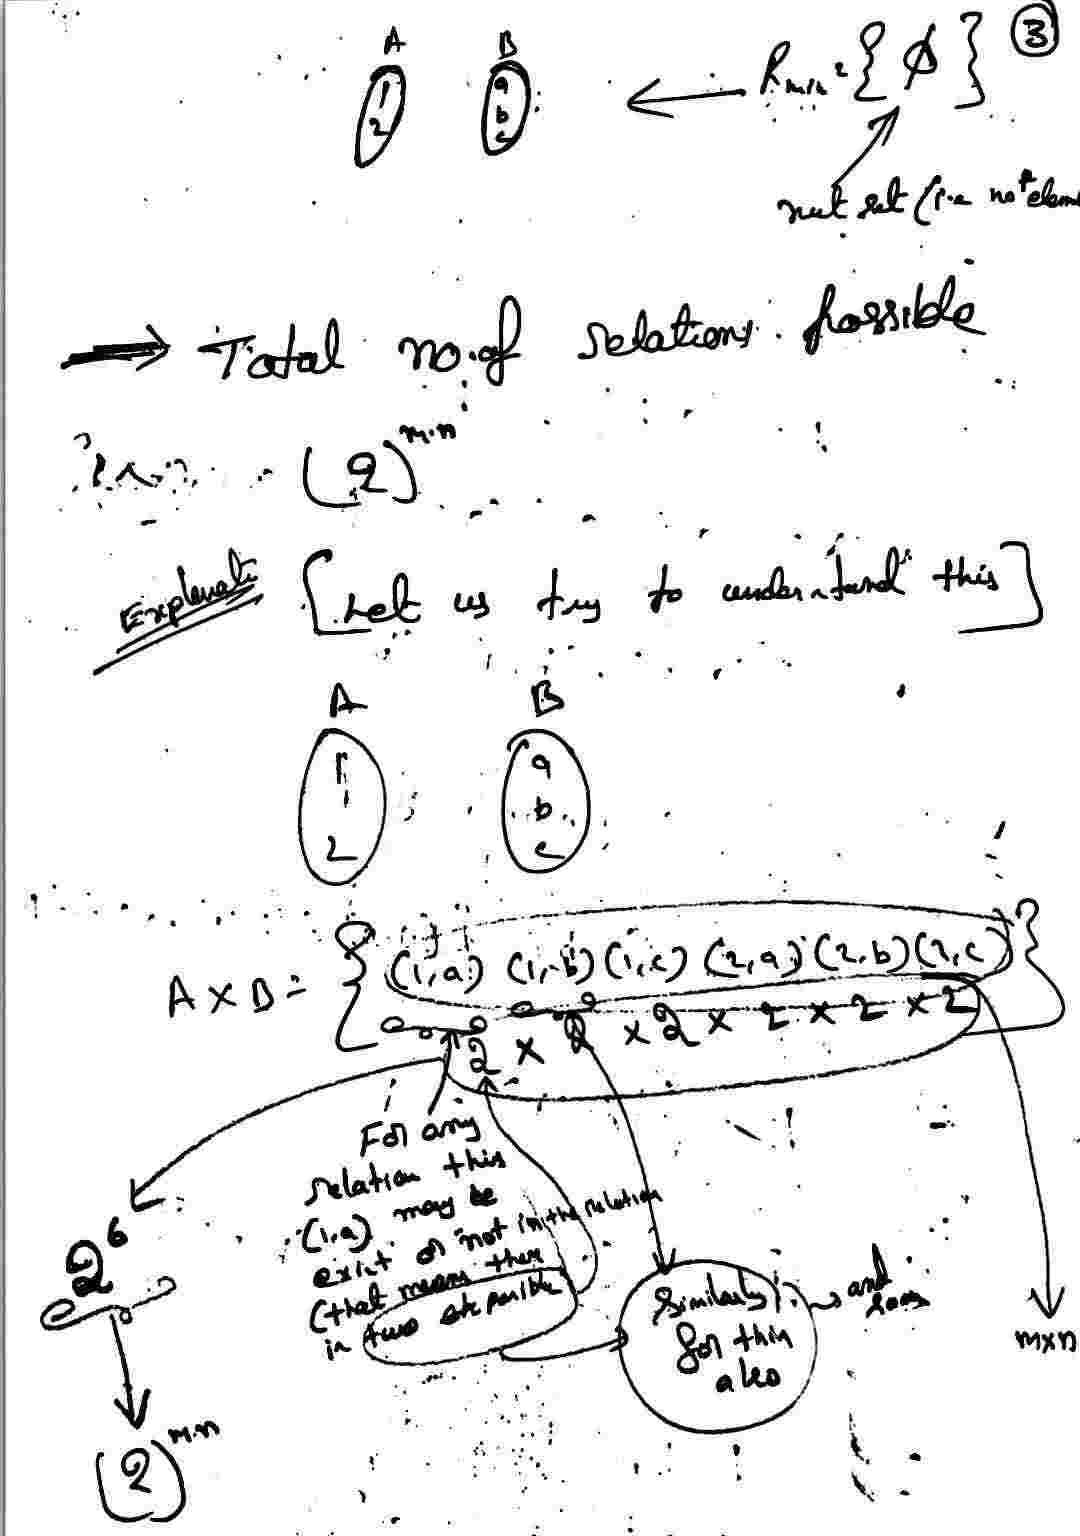 3
A B
1 a
2 b
c
Rmin = { ϕ }
null set (i.e no elem
→ Total no. of relations possible
(2)^m.n
Explanati [Let us try to understand this]
A B
1 a
b
2 c
A × B = { (1,a) (1,b) (1,c) (2,a) (2,b) (2,c) }
2 × 2 × 2 × 2 × 2 × 2
For any
relation this
(1,a) may be
exist or not in the relation
(that means there
in two possible
Similarly
for this
also
→ and
m×n
2^6
(2)^m.n